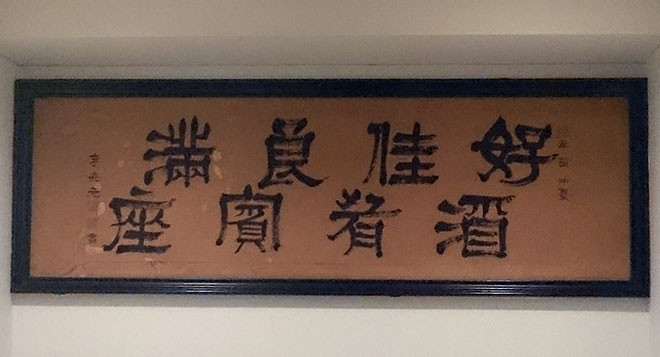 好酒
佳肴
良賓
滿座